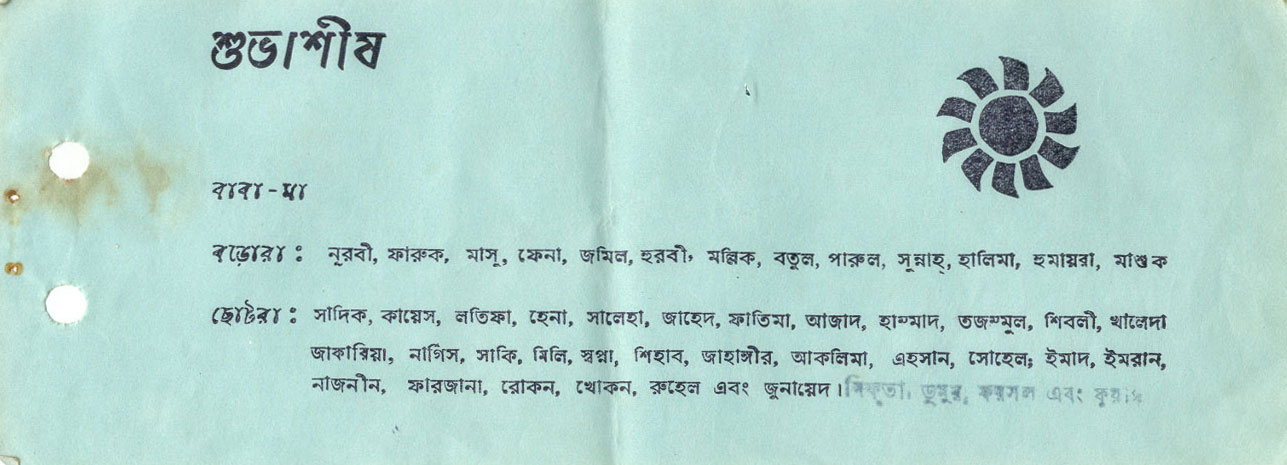 শুভাশীষ
বাবা - মা
বড়োরা : নূরবী, ফারুক, মাসু, ফেনা, জমিল, হুরবী, মল্লিক, বতুল, পারুল, সুন্নাহ্, হালিমা, হুমায়রা, মাশুক
ছোটরা : সাদিক, কায়েস, লতিফা, হেনা, সালেহা, জাহেদ, ফাতিমা, আজাদ, হাম্মাদ, তজম্মুল, শিবলী, খালেদা
জাকারিয়া, নার্গিস, সাকি, মিলি, স্বপ্না, শিহাব, জাহাঙ্গীর, আকলিমা, এহসান, সোহেল; ইমাদ, ইমরান,
নাজনীন, ফারজানা, রোকন, খোকন, রুহেল এবং জুনায়েদ। এবং